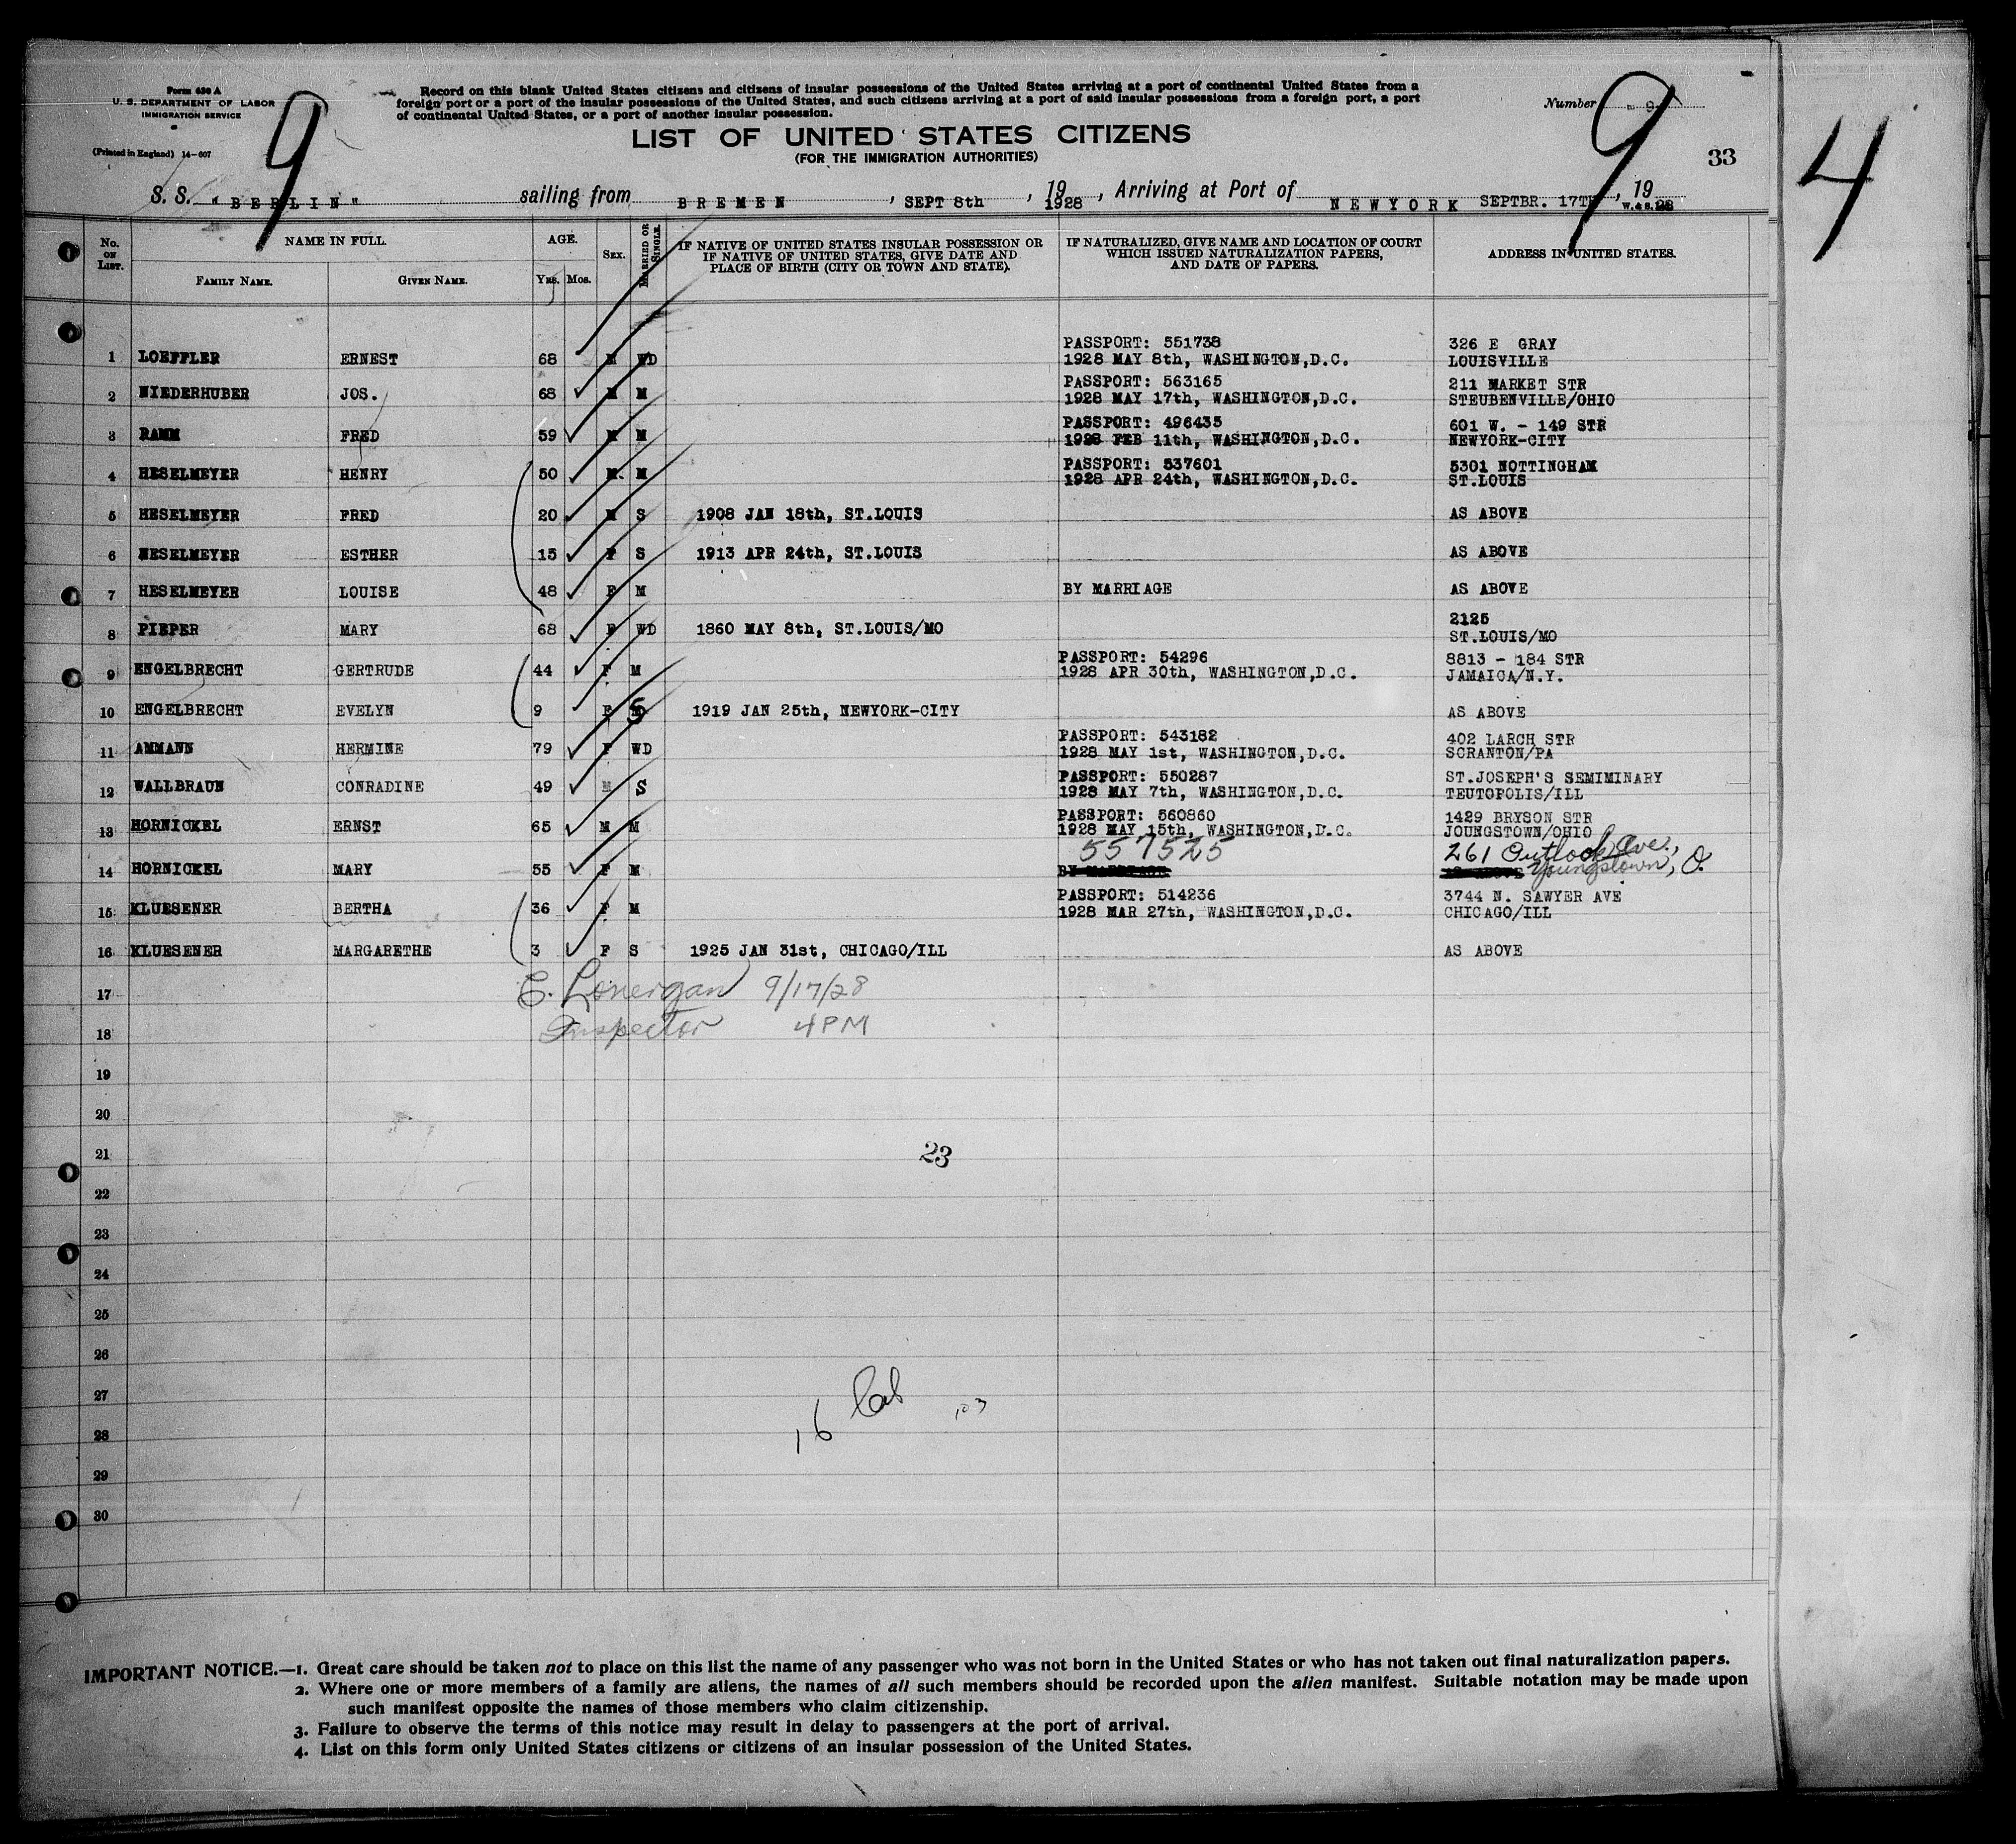 Form 630 A
U. S. DEPARTMENT OF LABOR
IMMIGRATION SERVICE
(Printed in England) 14-607
9
Record on this blank United States citizens and citizens of insular possessions of the United States arriving at a port of continental United States from a
foreign port or a port of the insular possessions of the United States, and such citizens arriving at a port of said insular possessions from a foreign port, a port
of continental United States, or a port of another insular possession.
LIST OF UNITED STATES CITIZENS
(FOR THE IMMIGRATION AUTHORITIES)
Number - 9 -
9
33
4
S. S. "BERLIN" sailing from BREMEN, SEPT 8th, 19 1928, Arriving at Port of NEWYORK SEPTBR. 17TH, 19 28
W. & S. Ltd.
No. ON LIST. NAME IN FULL. AGE. SEX. MARRIED OR SINGLE. IF NATIVE OF UNITED STATES INSULAR POSSESSION OR IF NATIVE OF UNITED STATES, GIVE DATE AND PLACE OF BIRTH (CITY OR TOWN AND STATE). IF NATURALIZED, GIVE NAME AND LOCATION OF COURT WHICH ISSUED NATURALIZATION PAPERS, AND DATE OF PAPERS. ADDRESS IN UNITED STATES.
FAMILY NAME. GIVEN NAME. YRS. MOS.
PASSPORT: 551738 326 E GRAY
1 LOEFFLER ERNEST 68 M WD 1928 MAY 8th, WASHINGTON,D.C. LOUISVILLE
PASSPORT: 563165 211 MARKET STR
2 NIEDERHUBER JOS. 68 M M 1928 MAY 17th, WASHINGTON,D.C. STEUBENVILLE/OHIO
PASSPORT: 496435 601 W. - 149 STR
3 RAMM FRED 59 M M 1928 FEB 11th, WASHINGTON,D.C. NEWYORK-CITY
PASSPORT: 537601 5301 NOTTINGHAM
4 HESELMEYER HENRY 50 M. M 1928 APR 24th, WASHINGTON,D.C. ST.LOUIS
5 HESELMEYER FRED 20 M S 1908 JAN 18th, ST.LOUIS AS ABOVE
6 HESELMEYER ESTHER 15 F S 1913 APR 24th, ST.LOUIS AS ABOVE
7 HESELMEYER LOUISE 48 F M BY MARRIAGE AS ABOVE
2125
8 PIEPER MARY 68 F WD 1860 MAY 8th, ST.LOUIS/MO ST.LOUIS/MO
PASSPORT: 54296 8813 - 184 STR
9 ENGELBRECHT GERTRUDE 44 F M 1928 APR 30th, WASHINGTON,D.C. JAMAICA/N.Y.
10 ENGELBRECHT EVELYN 9 F S 1919 JAN 25th, NEWYORK-CITY AS ABOVE
PASSPORT: 543182 402 LARCH STR
11 AMMANN HERMINE 79 F WD 1928 MAY 1st, WASHINGTON,D.C. SCRANTON/PA
PASSPORT: 550287 ST.JOSEPH'S SEMIMINARY
12 WALLBRAUN CONRADINE 49 M S 1928 MAY 7th, WASHINGTON,D.C. TEUTOPOLIS/ILL
PASSPORT: 560860 1429 BRYSON STR
13 HORNICKEL ERNST 65 M M 1928 MAY 15th, WASHINGTON,D.C. JOUNGSTOWN/OHIO
557525 261 Outlook Ave.,
14 HORNICKEL MARY 55 F M BY MARRIAGE AS ABOVE Youngstown, O.
PASSPORT: 514236 3744 N. SAWYER AVE
15 KLUESENER BERTHA 36 F M 1928 MAR 27th, WASHINGTON,D.C. CHICAGO/ILL
16 KLUESENER MARGARETHE 3 F S 1925 JAN 31st, CHICAGO/ILL AS ABOVE
17 E. Lonergan 9/17/28
18 Inspector 4 PM
19
20
21 23
22
23
24
25
26
27
28 16
29
30
IMPORTANT NOTICE.—1. Great care should be taken not to place on this list the name of any passenger who was not born in the United States or who has not taken out final naturalization papers.
2. Where one or more members of a family are aliens, the names of all such members should be recorded upon the alien manifest. Suitable notation may be made upon
such manifest opposite the names of those members who claim citizenship.
3. Failure to observe the terms of this notice may result in delay to passengers at the port of arrival.
4. List on this form only United States citizens or citizens of an insular possession of the United States.